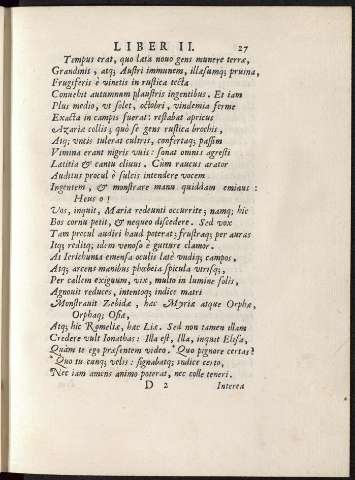 LIBER II. 27
Tempus erat, quo lata nouo gens munere terræ,
Grandinis, atq; Austri immunem, illæsumq; pruina,
Frugiferis è vinetis in rustica tecta
Conuehit autumnum plaustris ingentibus. Et iam
Plus medio, vt solet, octobri, vindemia ferme
Exacta in campis fuerat: restabat apricus
Azariæ collis; quò se gens rustica brochis,
Atq; vntis tulerat cultris, confertaq; passim
Vimina erant nigris vuis: sonat omnis agresti
Lætitia & cantu cliuus. Cùm raucus arator
Auditus procul è sulcis intendere vocem
Ingentem, & monstrare manu quiddam eminus:
Heus o!
Vos, inquit, Maria redeunti occurrite; namq; hic
Bos cornu petit, & nequeo discedere. Sed vox
Tam procul audiri haud poterat; frustraq; per auras
Itq; reditq; idem venoso è gutture clamor.
At Ierichuntis emensa oculis latè vndiq; campos,
Atq; arcens manibus phœbeia spicula vtrisq;,
Per callem exiguum, vix, multo in lumine solis,
Agnouit reduces, intentoq; indice matri
Monstrauit Zebidæ, hac Myriæ atque Orphæ,
Orphaq; Osiæ,
Atq; hic Romeliæ, hac Liæ. Sed non tamen illam
Credere vult Ionathas: Illa est, Illa, inquit Elisa,
Quàm te ego præsentem video. Quo pignore certas?
Quo tu cunq; velis: signabatq; iudice certo,
Nec iam amens animo poterat, nec colle teneri.
D 2 Interea